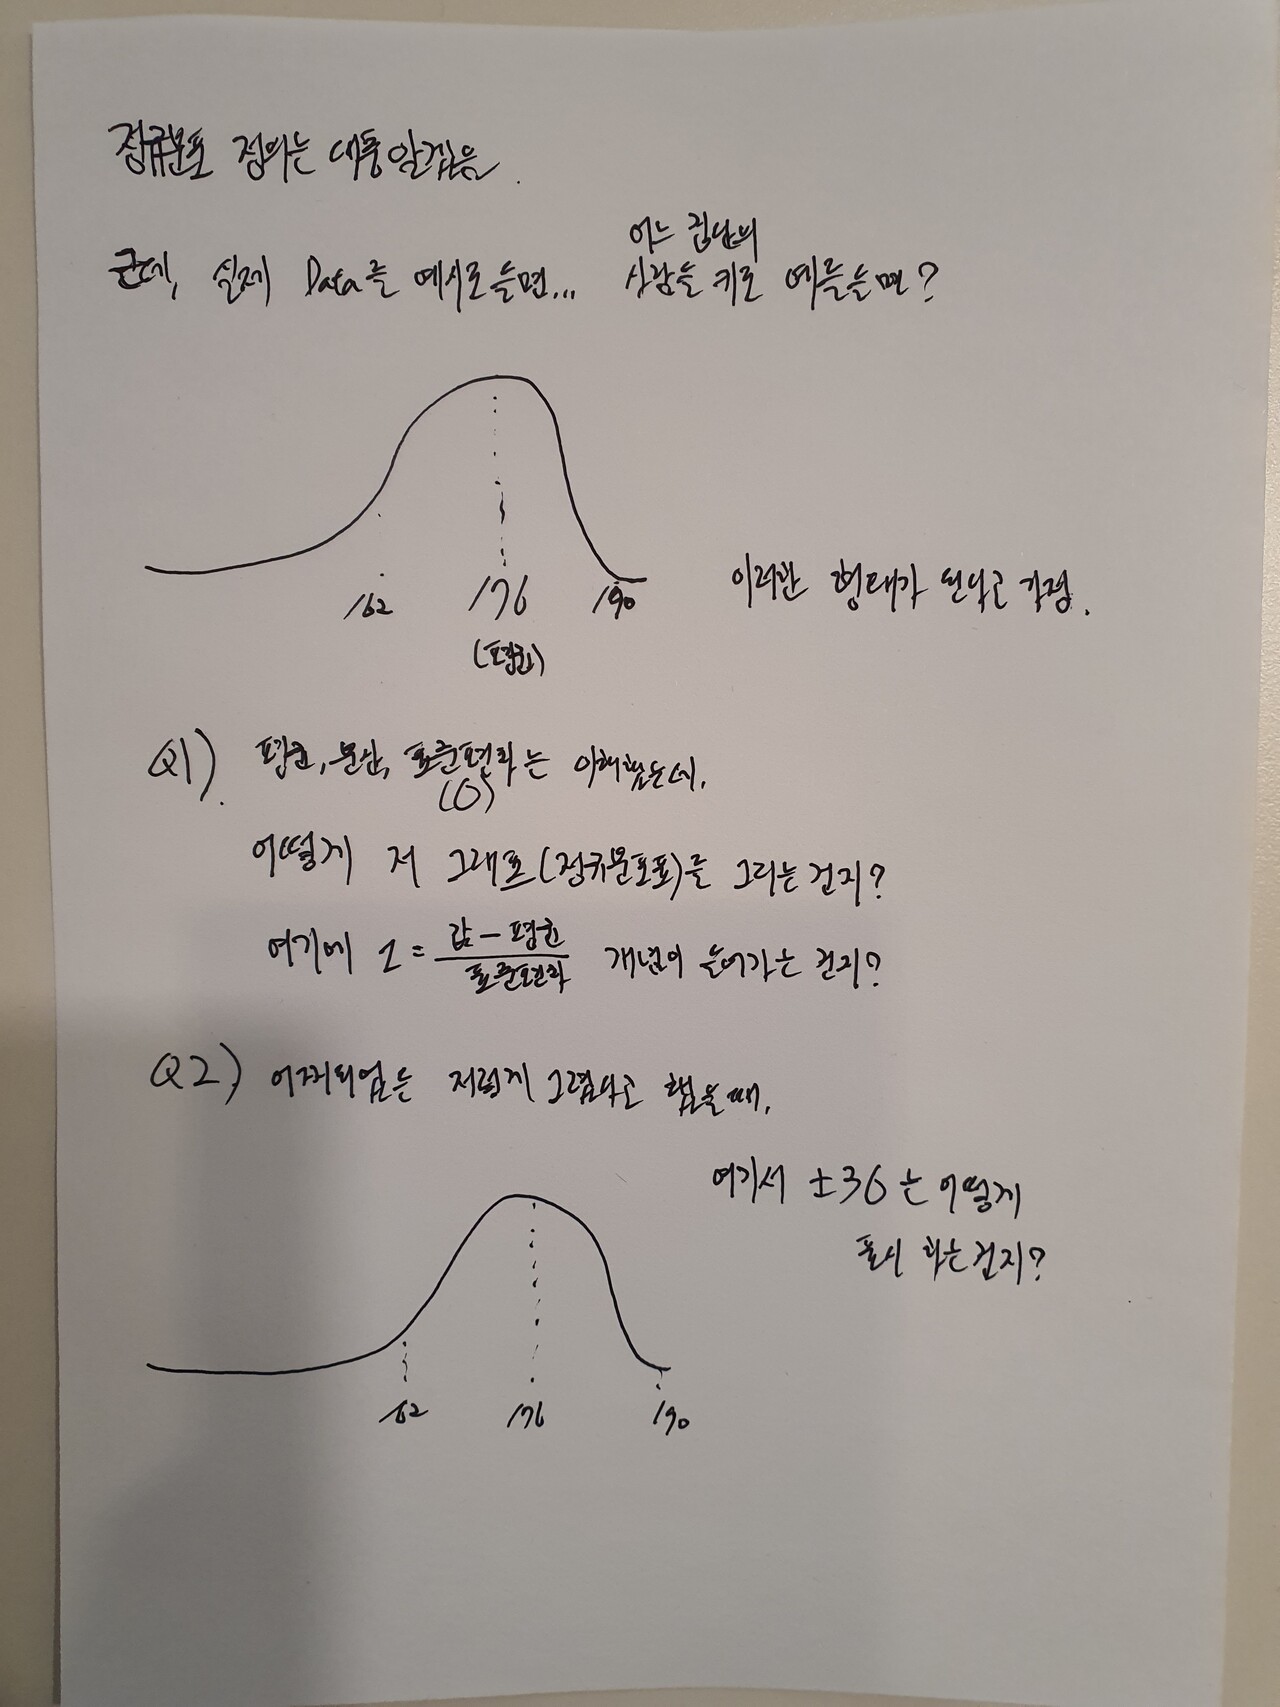 정규분포 정의는 대충알겠음.
어느 집단의
근데, 실제 Data를 예시로들면... 사람을 키로 예를들면?
162 176 190 이러한 형태가 된다고 가정.
(평균)
Q1) 평균, 분산, 표준편차는 이해했는데.
(σ)
어떻게 저 그래프(정규분포표)를 그리는건지?
여기에 z = 값 - 평균 / 표준편차 개념이 들어가는 건지?
Q2) 어찌되었든 저렇게 그렸다고 했을때,
여기서 ±3σ는 어떻게
표시 하는건지?
162 176 190